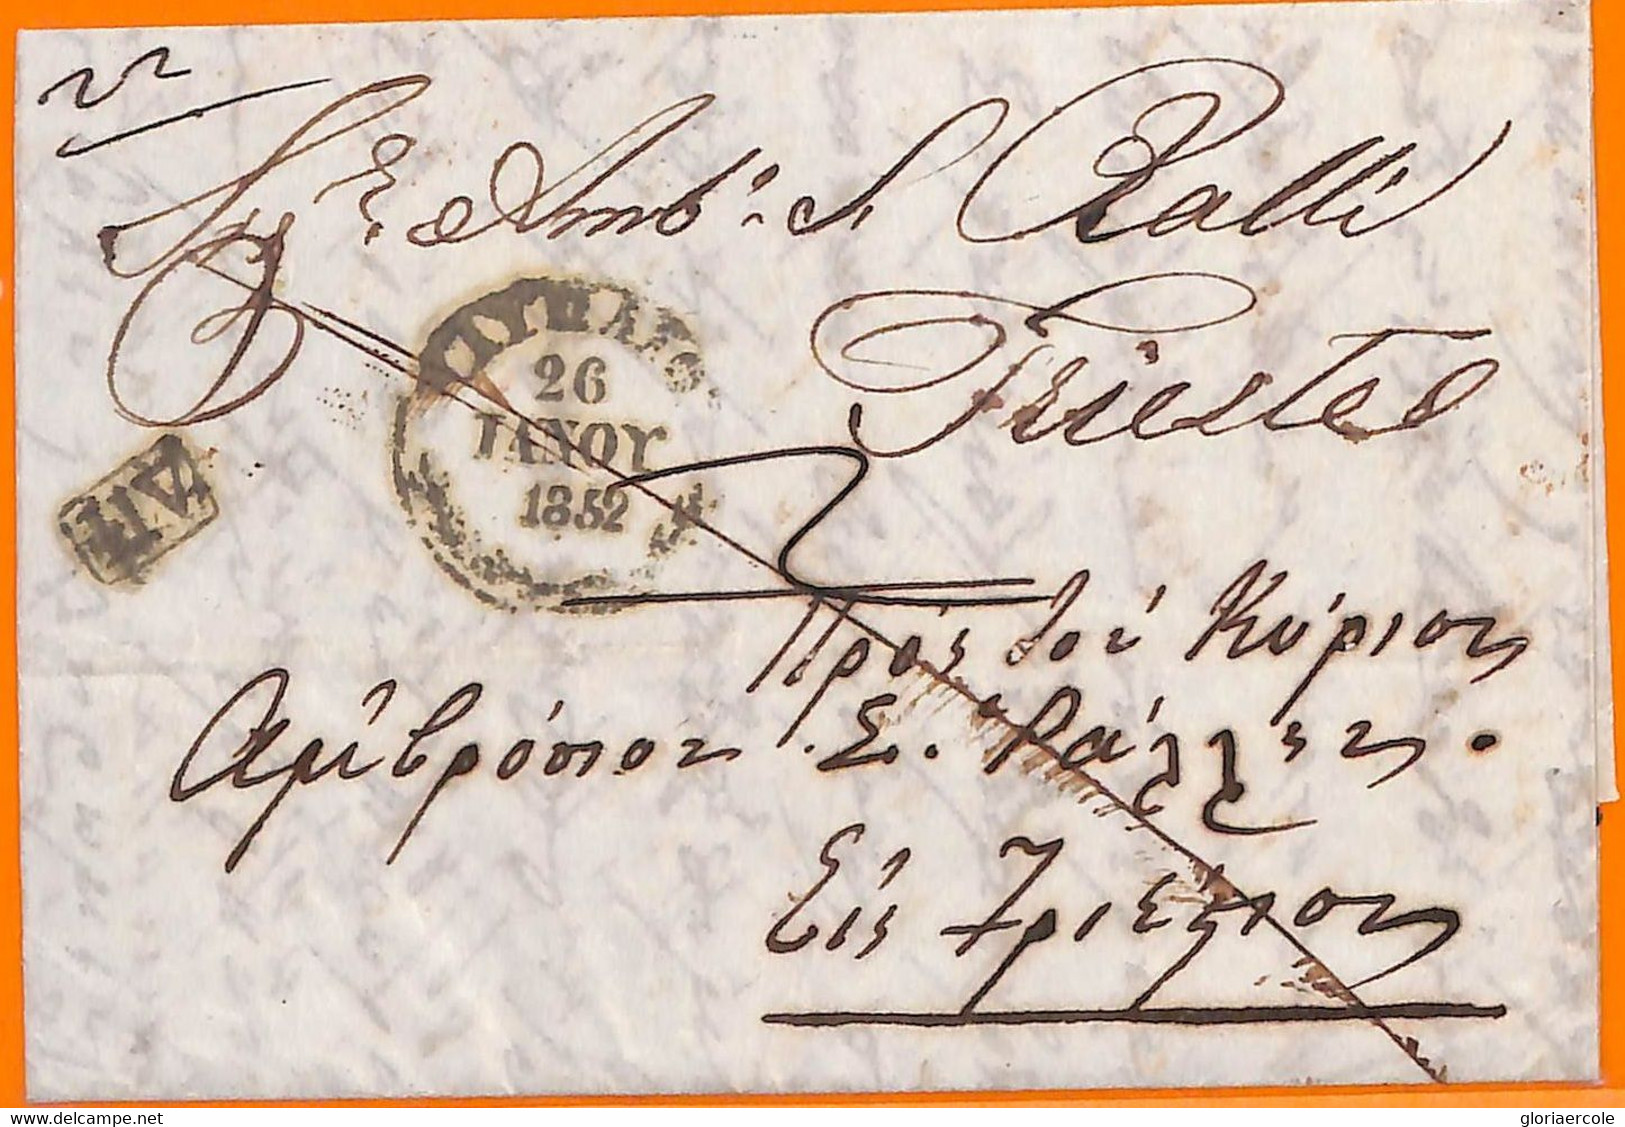 Sigr Ambo S Ralli
Trieste
26
ΙΑΝΟΥ
1852
Πρὸς τοὺ Κύριον
Αμβρόσιον Σ. Ράλλην.
Εἰς Τριέστιον
delcampe.net
gloriaercole